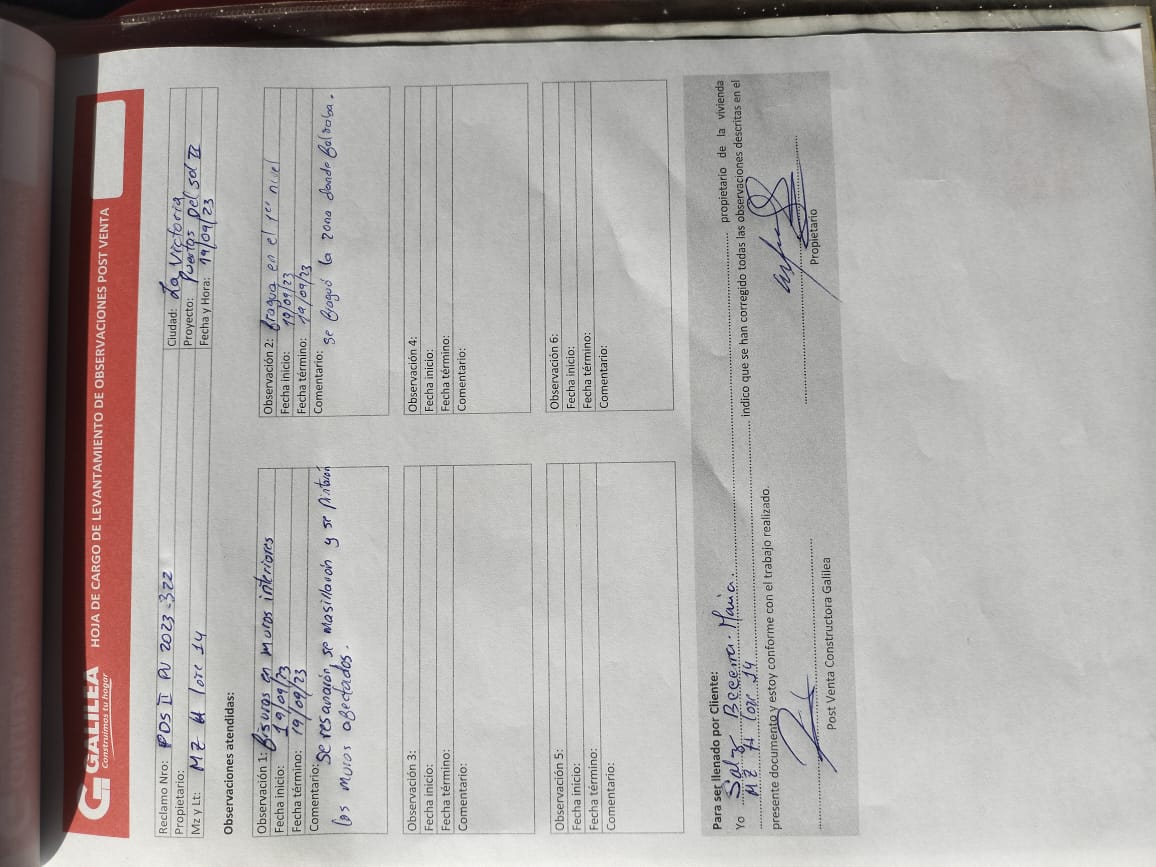 GALILEA
Construimos tu hogar
HOJA DE CARGO DE LEVANTAMIENTO DE OBSERVACIONES POST VENTA
Reclamo Nro: PDS II PV 2023-322
Ciudad: La Victoria
Propietario:
Proyecto: Puertas Del Sol II
Mz y Lt: MZ H lote 14
Fecha y Hora: 19/09/23
Observaciones atendidas:
Observación 1: Fisuras en muros interiores
Fecha inicio: 19/09/23
Fecha término: 19/09/23
Comentario: Se resanarón, se masillarón y se Pintarón
los muros afectados.
Observación 2: fragua en el 1er nivel
Fecha inicio: 19/09/23
Fecha término: 19/09/23
Comentario: se fraguó la zona donde faltaba.
Observación 3:
Fecha inicio:
Fecha término:
Comentario:
Observación 4:
Fecha inicio:
Fecha término:
Comentario:
Observación 5:
Fecha inicio:
Fecha término:
Comentario:
Observación 6:
Fecha inicio:
Fecha término:
Comentario:
Para ser llenado por Cliente:
Yo Becerra Maria. propietario de la vivienda
MZ H lote 14 indico que se han corregido todas las observaciones descritas en el
presente documento y estoy conforme con el trabajo realizado.
Post Venta Constructora Galilea
Propietario